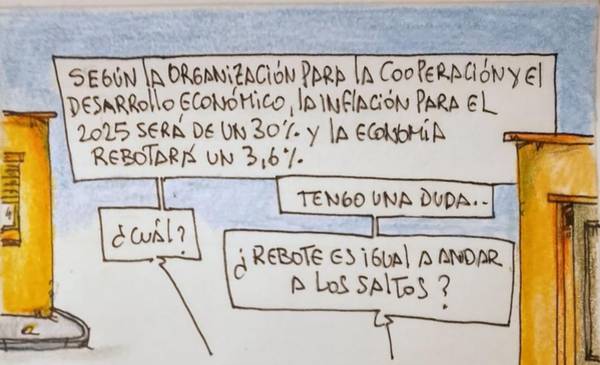 SEGÚN LA ORGANIZACIÓN PARA LA COOPERACIÓN Y El
DESARROLLO ECONÓMICO, LA INFLACIÓN PARA EL
2025 SERÁ DE UN 30% Y LA ECONOMÍA
REBOTARÁ UN 3,6%.
TENGO UNA DUDA..
¿CUÁL?
¿REBOTE ES IGUAL A ANDAR
A LOS SALTOS?